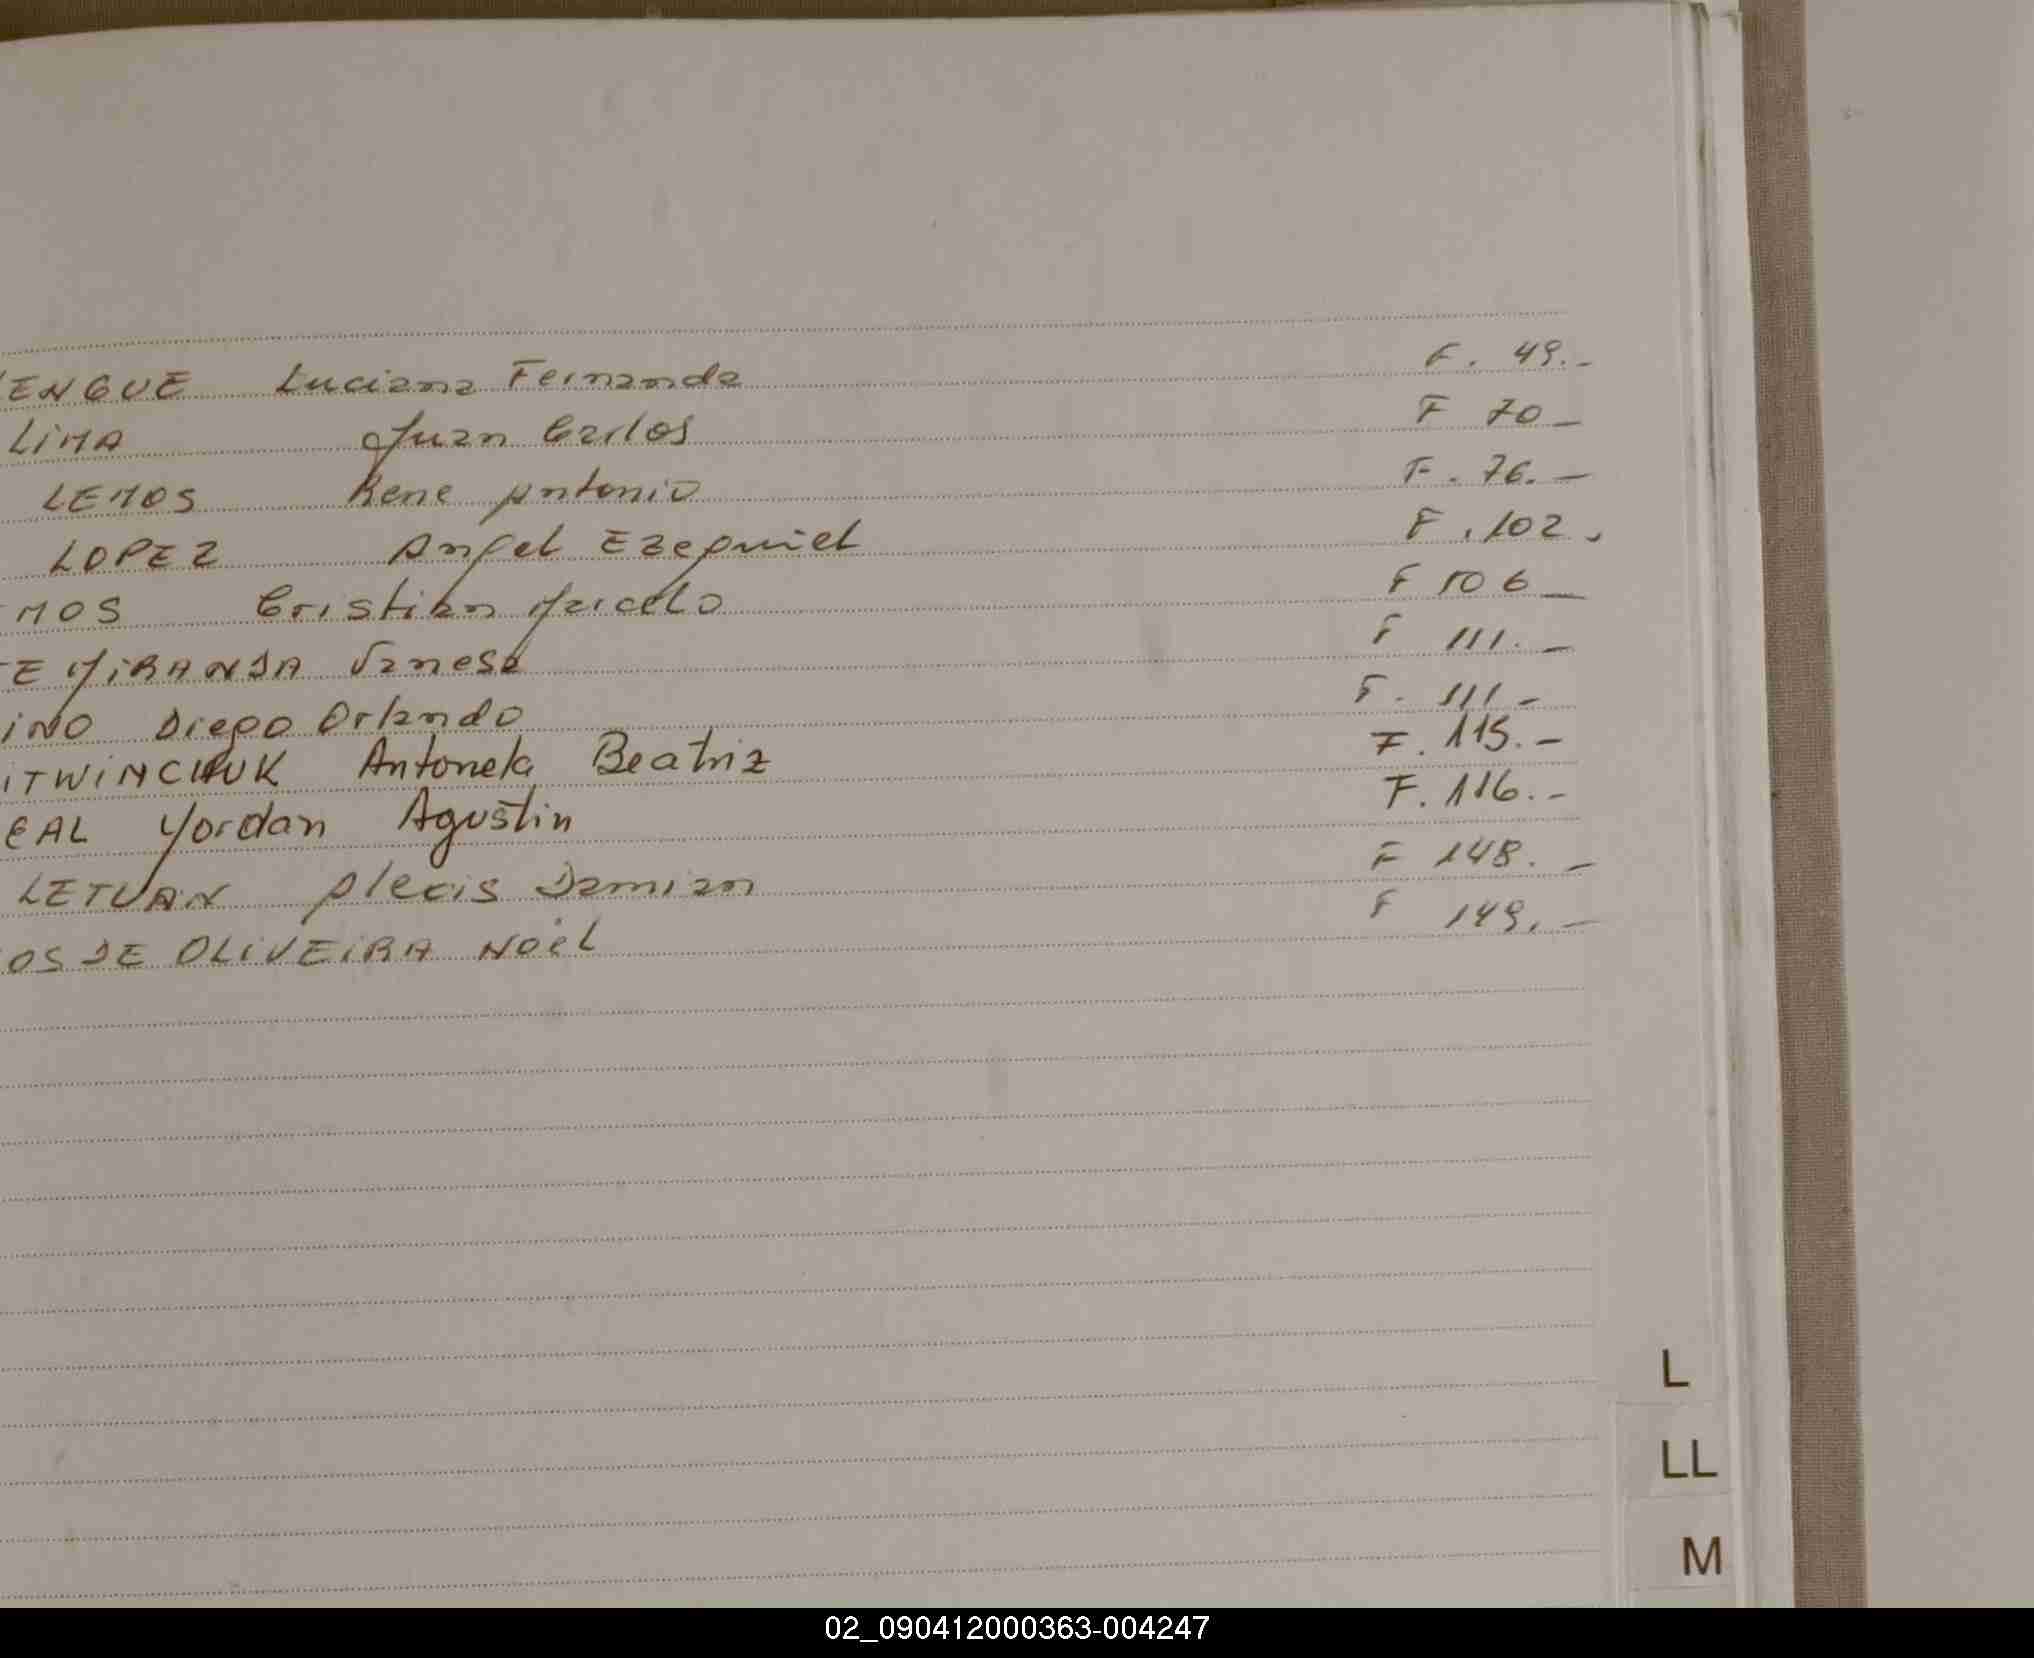 ENGUE Luciana Fernanda F. 49.-
LIMA Juan Carlos F 70-
LEMOS Rene Antonio F. 76.-
LOPEZ Angel Ezequiel F. 102.
MOS Cristian Marcelo F 106-
TE MIRANDA Vanesa F 111.-
INO Diego Orlando F. 111-
ITWINCHUK Antonela Beatriz F. 115.-
EAL Yordan Agustin F. 116.-
LETUAN Alexis Damian F 148.-
OS DE OLIVEIRA Noel F 149.-
L
LL
M
02_090412000363-004247